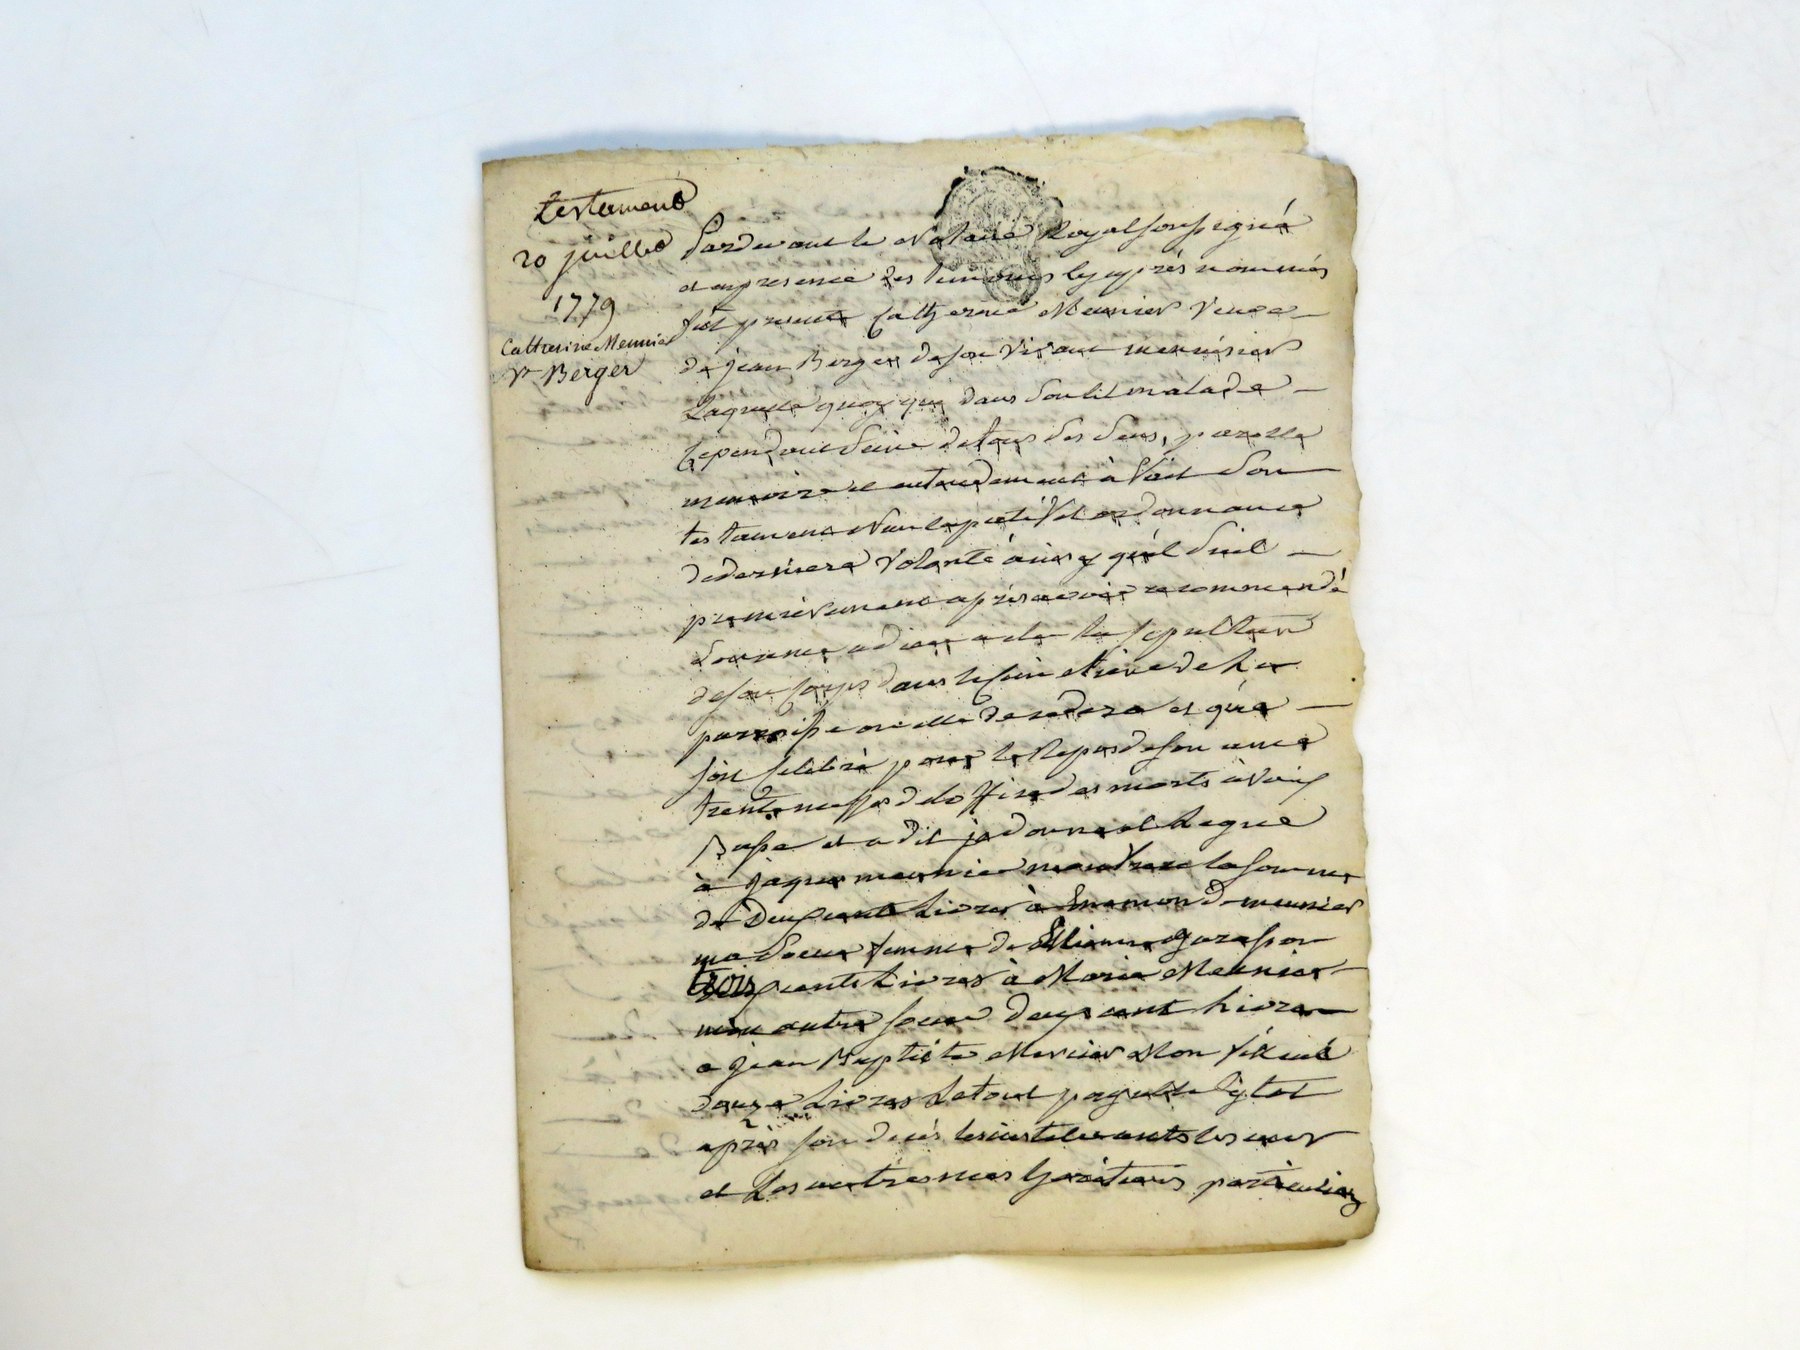 testament
20 juillet
1779
Catherine Meunier
Ve Berger
Pardevant le Notaire Royal soussigné
et en presence des temoins cy après nommés
fut presente Catherine Meunier Veuve
de jean Berger de son Vivant menuisier
Laquelle quoy que dans son lit malade
Cependant saine de tous ses sens, parolle
memoire et entendement à fait son
testament Noncupatif et ordonnance
de derniere Volonté ainsy qu'il suit
premièrement après avoir recommandé
son ame a dieu a elu la sepulture
de son Corps dans le Cimetière de la
parroisse ou elle decedera et que
soit celebré pour le Repos de son ame
trente messes de loffice des morts à Voix
Basse et a dit je donne et Legue
à jaques meunier mon frere la somme
de Deux cents Livres à meunier
ma Soeur femme de Etienne
trois cents Livres à Marie Meunier
mon autre soeur deux cent Livres
a jean Baptiste Mon filleul
douze Livres Le tout payable sytot
après son decés les instituants les uns
et Les autres mes heritiers particuliers